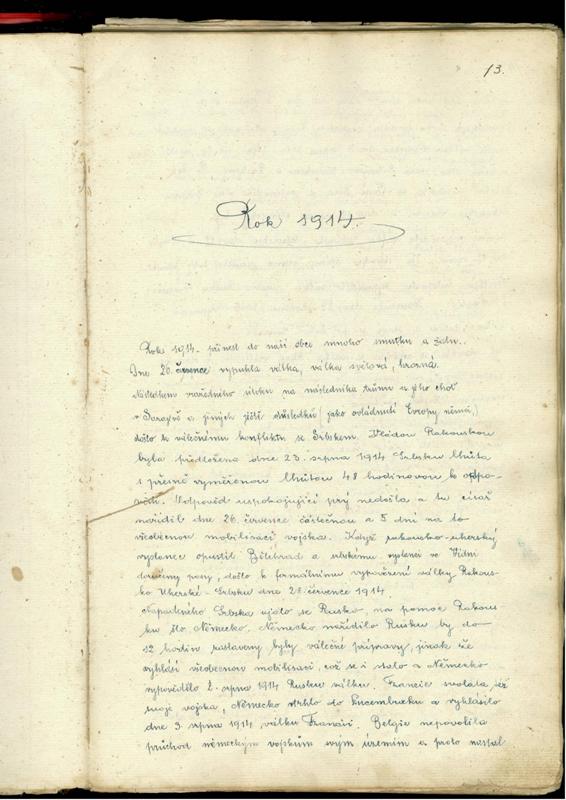 13.
Rok 1914.
Rok 1914. přinesl do naší obce mnoho smutku a žalu.
Dne 26. července vypukla válka, válka světová, hrozná.
Následkem vražedného útoku na následníka trůnu a jeho choť
v Sarajevě a jiných ještě důsledků (jako ovládnutí Evropy němá,)
došlo k válečnému konfliktu se Srbskem. Vládou Rakouskou
byla předložena dne 23. srpna 1914 Srbsku lhůta
s přesně vyměřenou lhůtou 48 hodinovou k odpo-
vědi. Odpověď uspokojující prý nedošla a tu císař
nařídil dne 26. července částečnou a 5 dní na to
všeobecnou mobilisaci vojska. Když rakousko-uherský
vyslanec opustil Bělehrad a srbskému vyslanci ve Vídni
doručeny pasy, došlo k formálnímu vypovězení války Rakous-
ko Uherské - Srbsku dne 28. července 1914.
Napadeného Srbska ujalo se Rusko, na pomoc Rakous
ku šlo Německo. Německo nařídilo Rusku by do
12 hodin zastaveny byly válečné přípravy, jinak že
vyhlásí všeobecnou mobilisaci, což se i stalo a Německo
vypovědělo 2. srpna 1914 Rusku válku. Francie svolala též
svoje vojska, Německo vtrhlo do Lucemburku a vyhlásilo
dne 3. srpna 1914 válku Francii. Belgie nepovolila
průchod německým vojskům svým územím a proto nastal